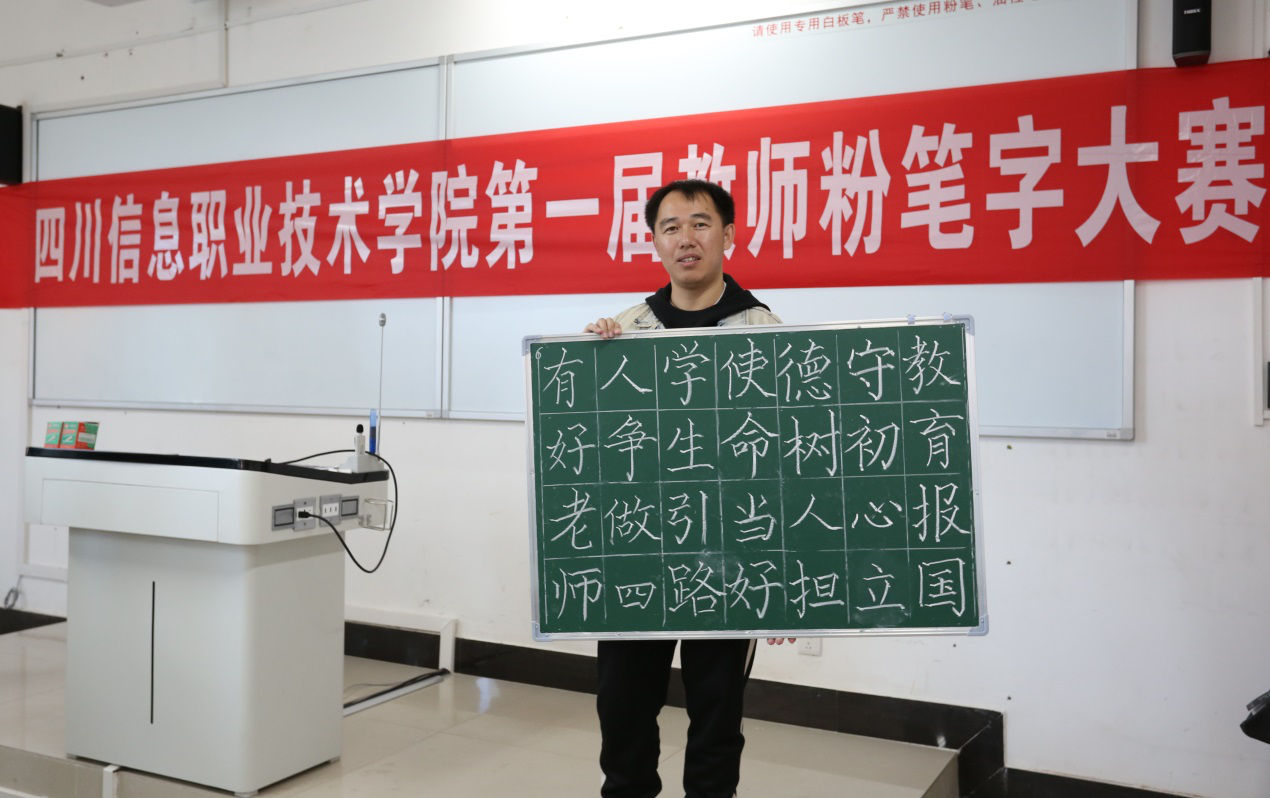 请使用专用白板笔，严禁使用粉笔、油性
四川信息职业技术学院第一届教师粉笔字大赛
6
教育报国
守初心立
德树人担
使命当好
学生引路
人争做四
有好老师